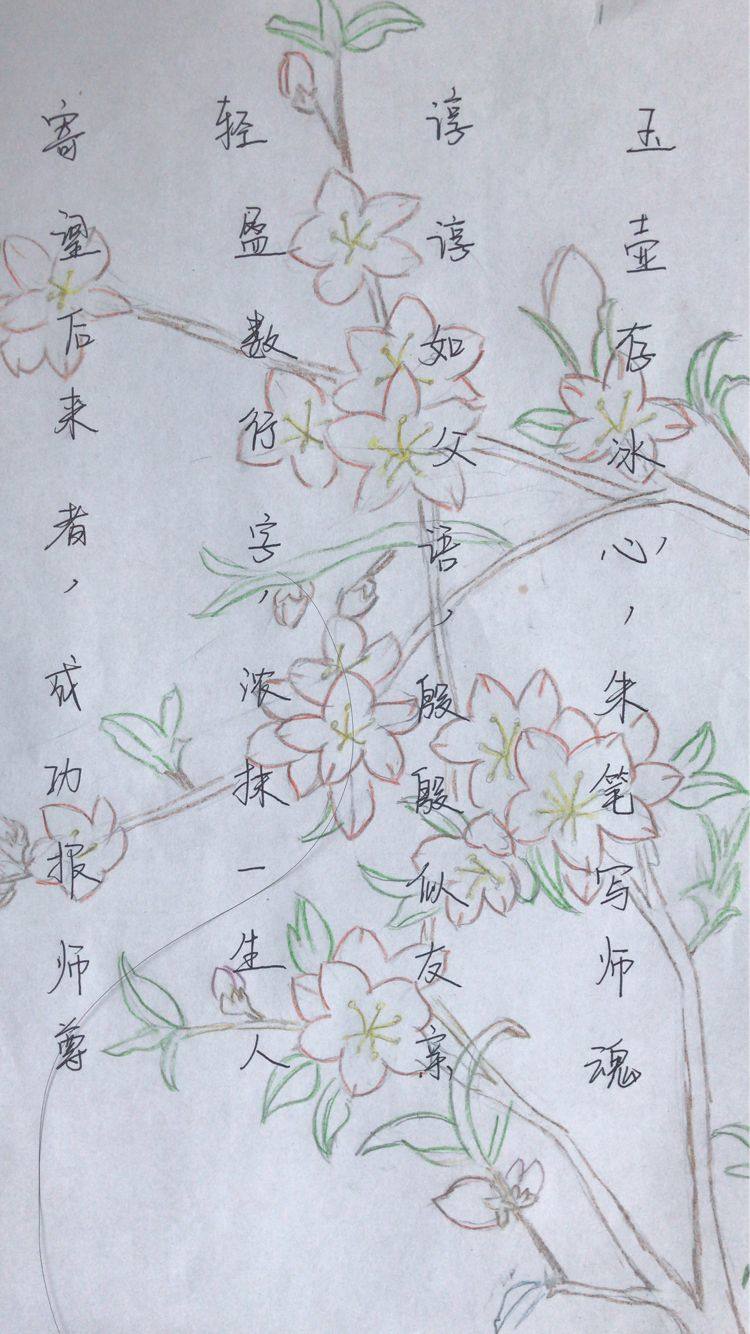 玉壶存冰心，朱笔写师魂
谆谆如父语，殷殷似友亲
轻盈数行字，浓抹一生人
寄望后来者，成功报师尊